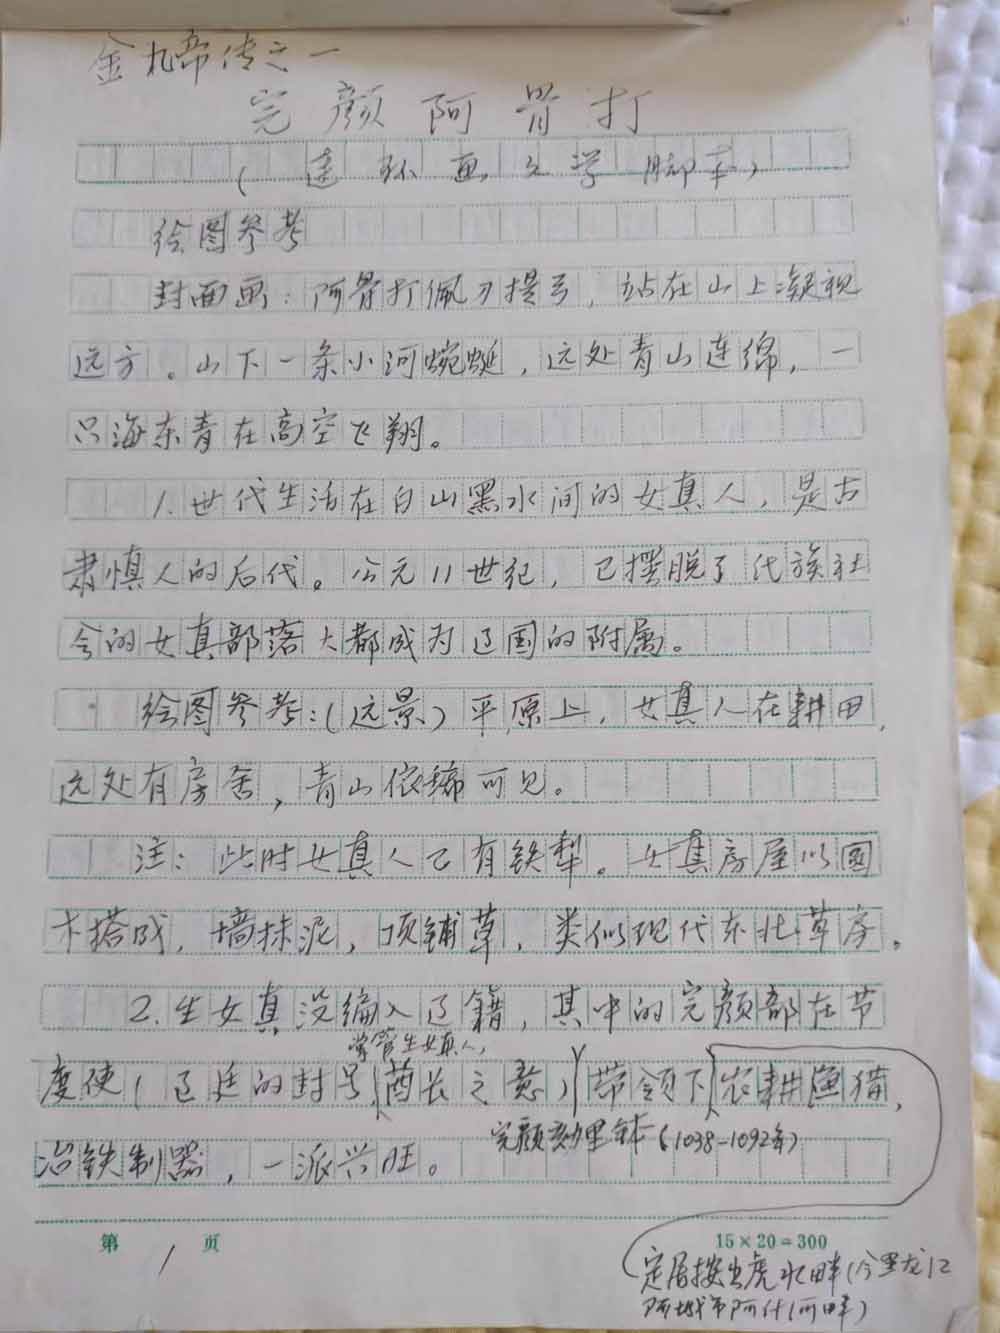 金九帝传之一
完颜阿骨打
(连环画文学脚本)
绘图参考
封面画：阿骨打佩刀提弓，站在山上凝视
远方。山下一条小河蜿蜒，远处青山连绵，一
只海东青在高空飞翔。
1.世代生活在白山黑水间的女真人，是古
肃慎人的后代。公元11世纪，已摆脱了氏族社
会的女真部落大都成为辽国的附属。
绘图参考：(远景)平原上，女真人在耕田，
远处有房舍，青山依稀可见。
注：此时女真人已有铁犁。女真房屋以圆
木搭成，墙抹泥，顶铺草，类似现代东北草房。
2.生女真没编入辽籍，其中的完颜部在节
掌管生女真人，
度使(辽廷的封号，酋长之意)带领下农耕渔猎，
完颜劾里钵(1038-1092年)
冶铁制器，一派兴旺。
第 1 页
15×20=300
定居按出虎水畔(今黑龙江
阿城市阿什河畔)